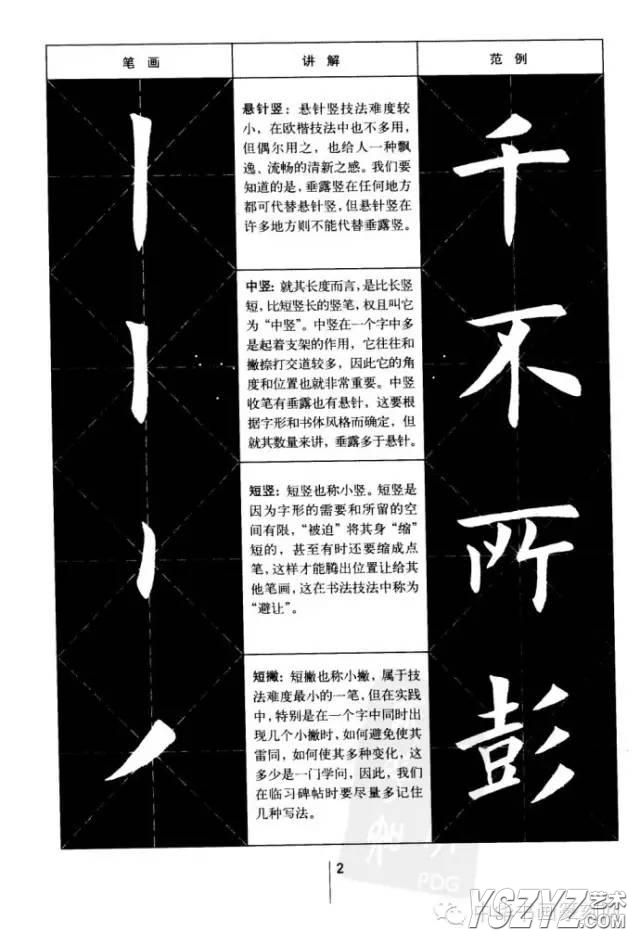 笔画
讲解
范例
悬针竖：悬针竖技法难度较
小，在欧楷技法中也不多用，
但偶尔用之，也给人一种飘
逸、流畅的清新之感。我们要
知道的是，垂露竖在任何地方
都可代替悬针竖，但悬针竖在
许多地方则不能代替垂露竖。
千
中竖：就其长度而言，是比长竖
短，比短竖长的竖笔，权且叫它
为“中竖”。中竖在一个字中多
是起着支架的作用，它往往和
撇捺打交道较多，因此它的角
度和位置也就非常重要。中竖
收笔有垂露也有悬针，这要根
据字形和书体风格而确定，但
就其数量来讲，垂露多于悬针。
不
短竖：短竖也称小竖。短竖是
因为字形的需要和所留的空
间有限，“被迫”将其身“缩”
短的，甚至有时还要缩成点
笔，这样才能腾出位置让给其
他笔画，这在书法技法中称为
“避让”。
所
短撇：短撇也称小撇，属于技
法难度最小的一笔，但在实践
中，特别是在一个字中同时出
现几个小撇时，如何避免使其
雷同，如何使其多种变化，这
多少是一门学问，因此，我们
在临习碑帖时要尽量多记住
几种写法。
彭
2
PDG
YSZYZ艺术